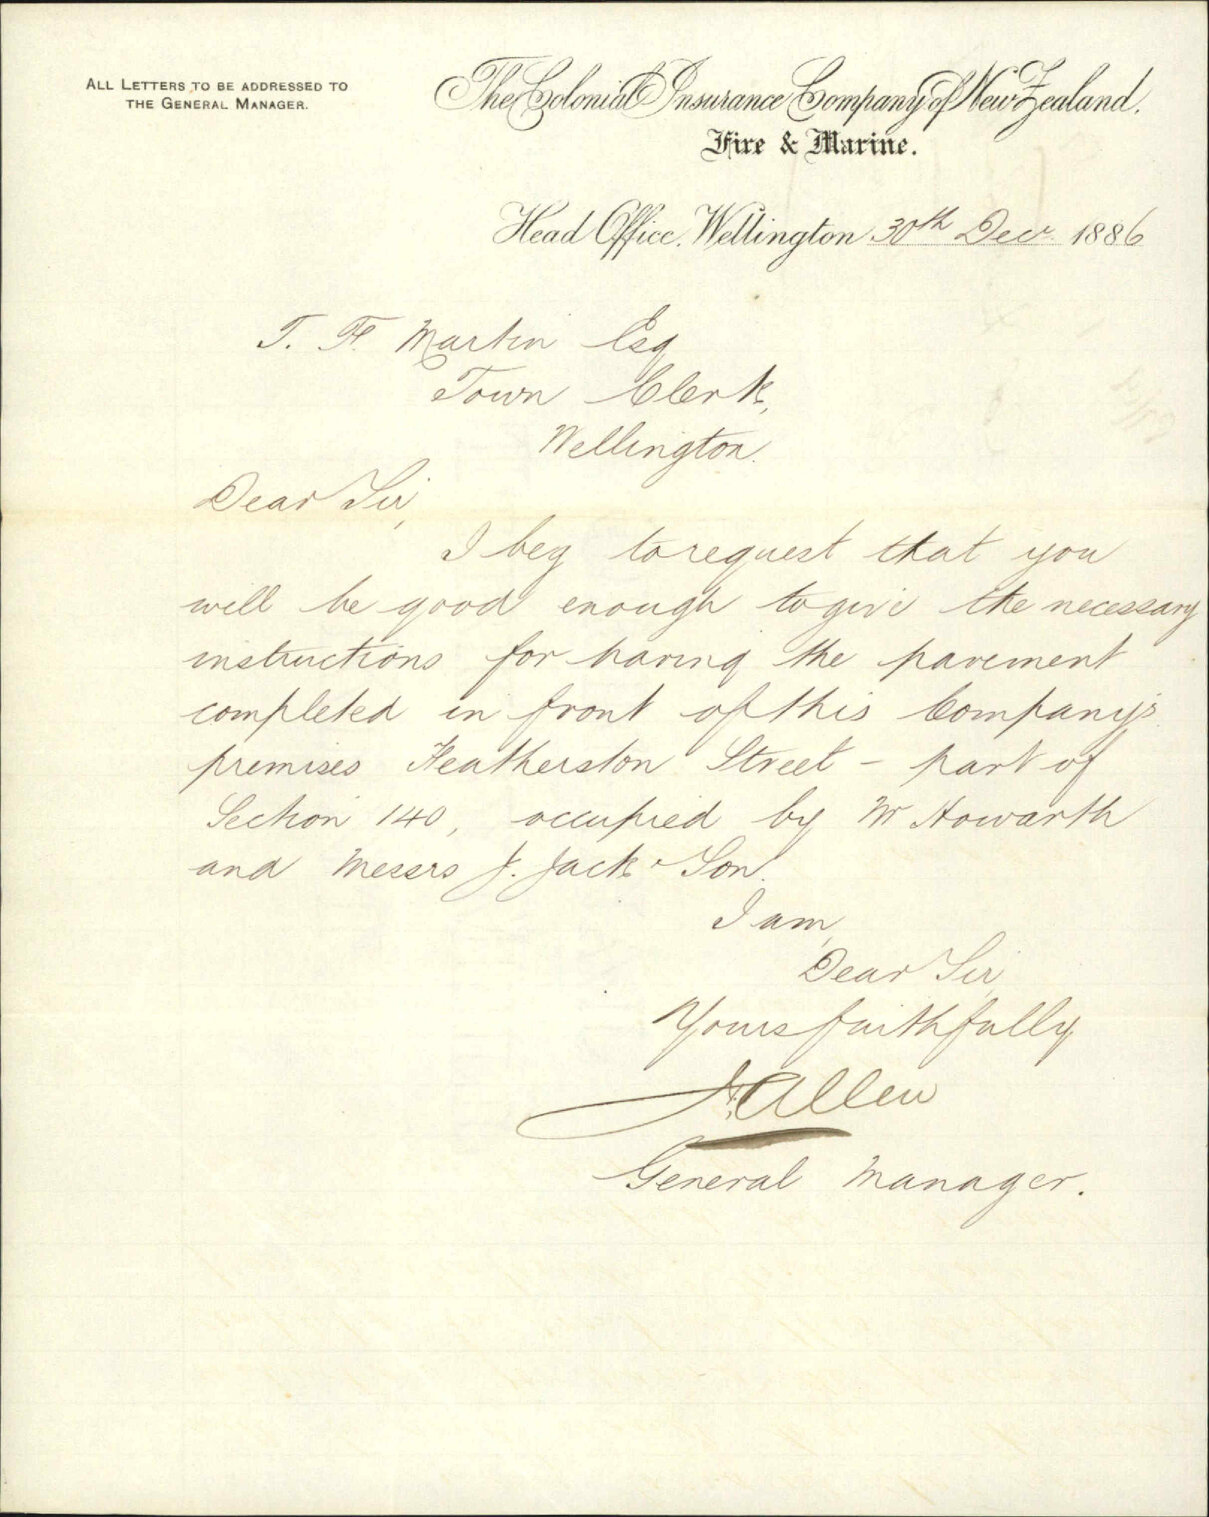 ALL LETTERS TO BE ADDRESSED TO
THE GENERAL MANAGER.
The Colonial Insurance Company of New Zealand.
Fire & Marine.
Head Office, Wellington 30th Decr. 1886
T. F. Martin Esq
Town Clerk,
Wellington.
Dear Sir,
I beg to request that you
will be good enough to give the necessary
instructions for having the pavement
completed in front of this Company's
premises Featherston Street - part of
Section 140, occupied by Mr Howarth
and Messrs J. Jack & Son.
I am,
Dear Sir,
Yours faithfully
Allen
General Manager.